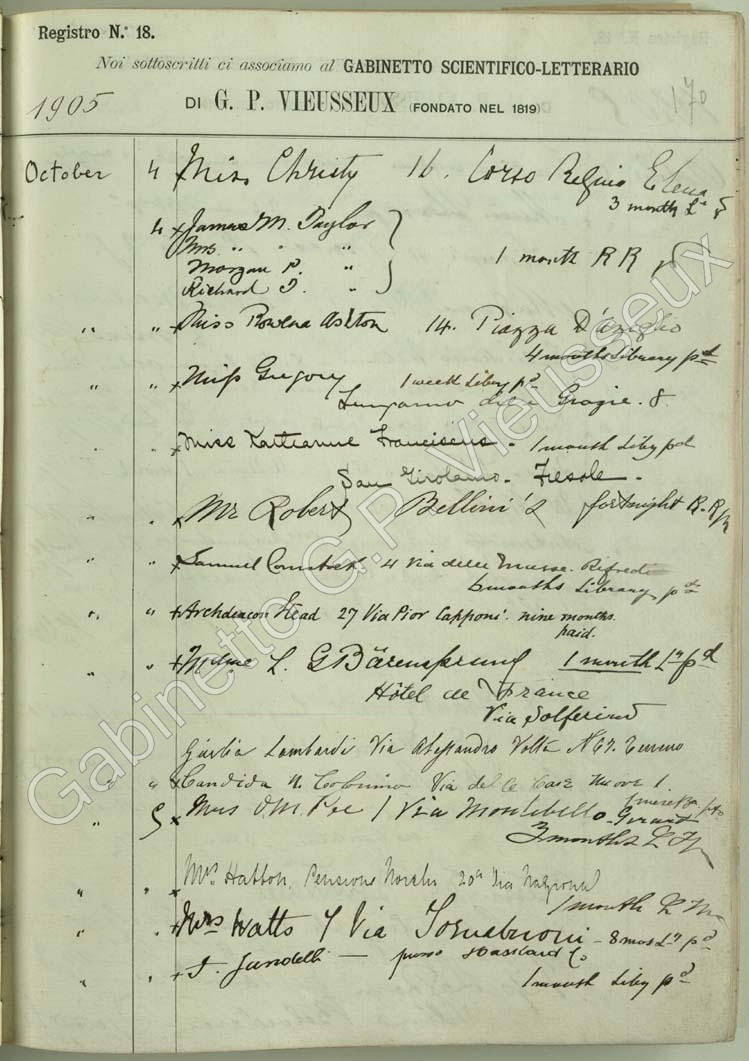 Registro N.° 18.
Noi sottoscritti ci associamo al GABINETTO SCIENTIFICO-LETTERARIO
1905 DI G. P. VIEUSSEUX (FONDATO NEL 1819)
170
October 4 Miss Christy 16. Corso Regina Elena
3 month
4 x James M. Taylor
Mrs " " "
Morgan P. "
Richard I. "
1 month R R
" " x Miss Rowena Ashton 14. Piazza D'Azeglio
4 months Library pd
" " x Miss Gregory 1 week Liby pd
Lungarno delle Grazie. 8
" x Miss Katharine Franciscus - 1 month Liby pd
San Girolamo - Fiesole -
" " x Mr Roberts Bellini's fortnight R. R
" " x Samuel 4 Via delle Rifredi
6 months Library pd
" " x Archdeacon Head 27 Via Pier Capponi. nine months
paid.
" " x Mme L. G Bärensprung 1 month Ly pd
Hôtel de France
Via Solferino
Giulia Lombardi Via Alessandro Volta N
" x Candida Via delle Case Nuove 1
" 5 x Mrs 1 Via Montebello
3 months L
" " x Mrs Hatton, Pensione 20a Via Nazional
1 month L
" " x Mrs Watts 7 Via Tornabuoni - 8 mos Ly pd
" " x Haskard Co
1 month Liby pd
Gabinetto G.P. Vieusseux